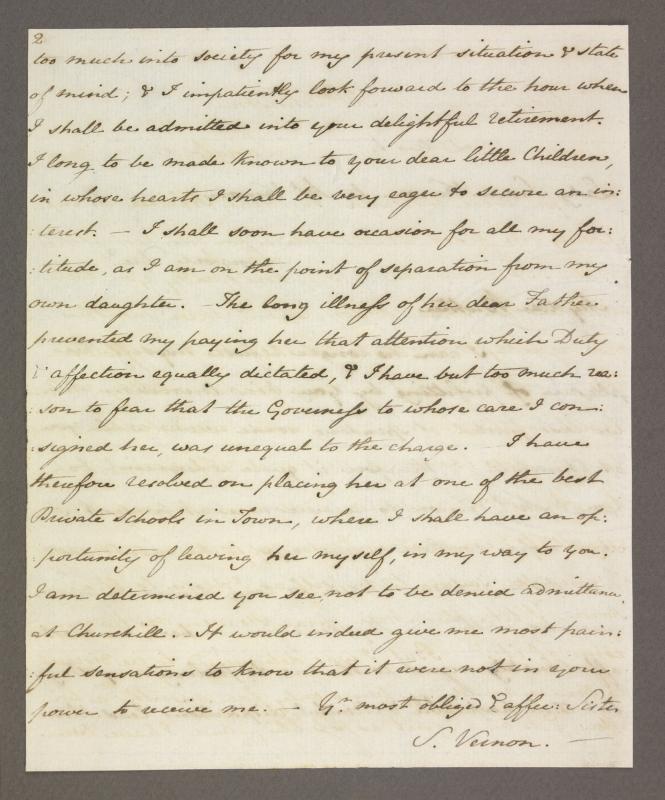 2
too much into society for my present situation & state
of mind; & I impatiently look forward to the hour when
I shall be admitted into your delightful retirement.
I long to be made known to your dear little Children,
in whose hearts I shall be very eager to secure an in:
:terest. — I shall soon have occasion for all my for:
:titude, as I am on the point of separation from my
own daughter. — The long illness of her dear Father
prevented my paying her that attention which Duty
& affection equally dictated, & I have but too much rea:
:son to fear that the Governess to whose care I con:
:signed her, was unequal to the charge. — I have
therefore resolved on placing her at one of the best
Private Schools in Town, where I shall have an op:
:portunity of leaving her myself, in my way to you.
I am determined you see, not to be denied admittance
at Churchill. — It would indeed give me most pain:
:ful sensations to know that it were not in your
power to receive me. — Yr. most obliged & affec: Sister
S. Vernon. —